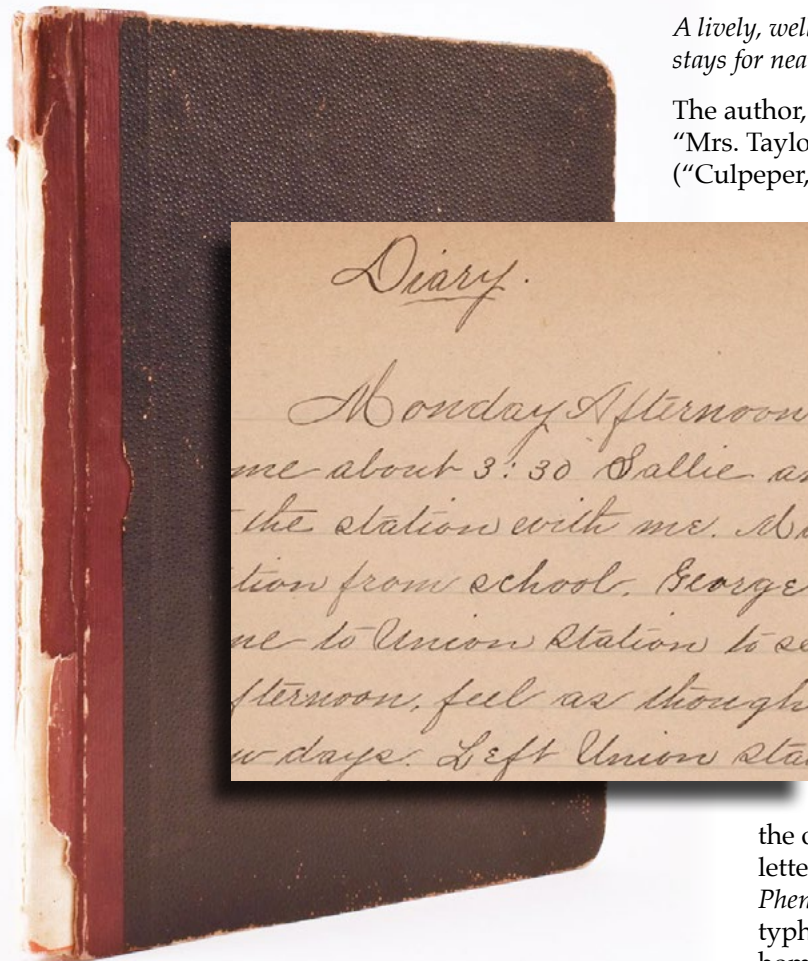 A lively, well
stays for nea
The author,
“Mrs. Taylo
(“Culpeper,
Diary.
Monday Afternoon
me about 3:30 Sallie an
the station with me. M
tion from school. George
me to Union Station to se
fternoon, feel as though
w days. Left Union Sta
the
lette
Phen
typh